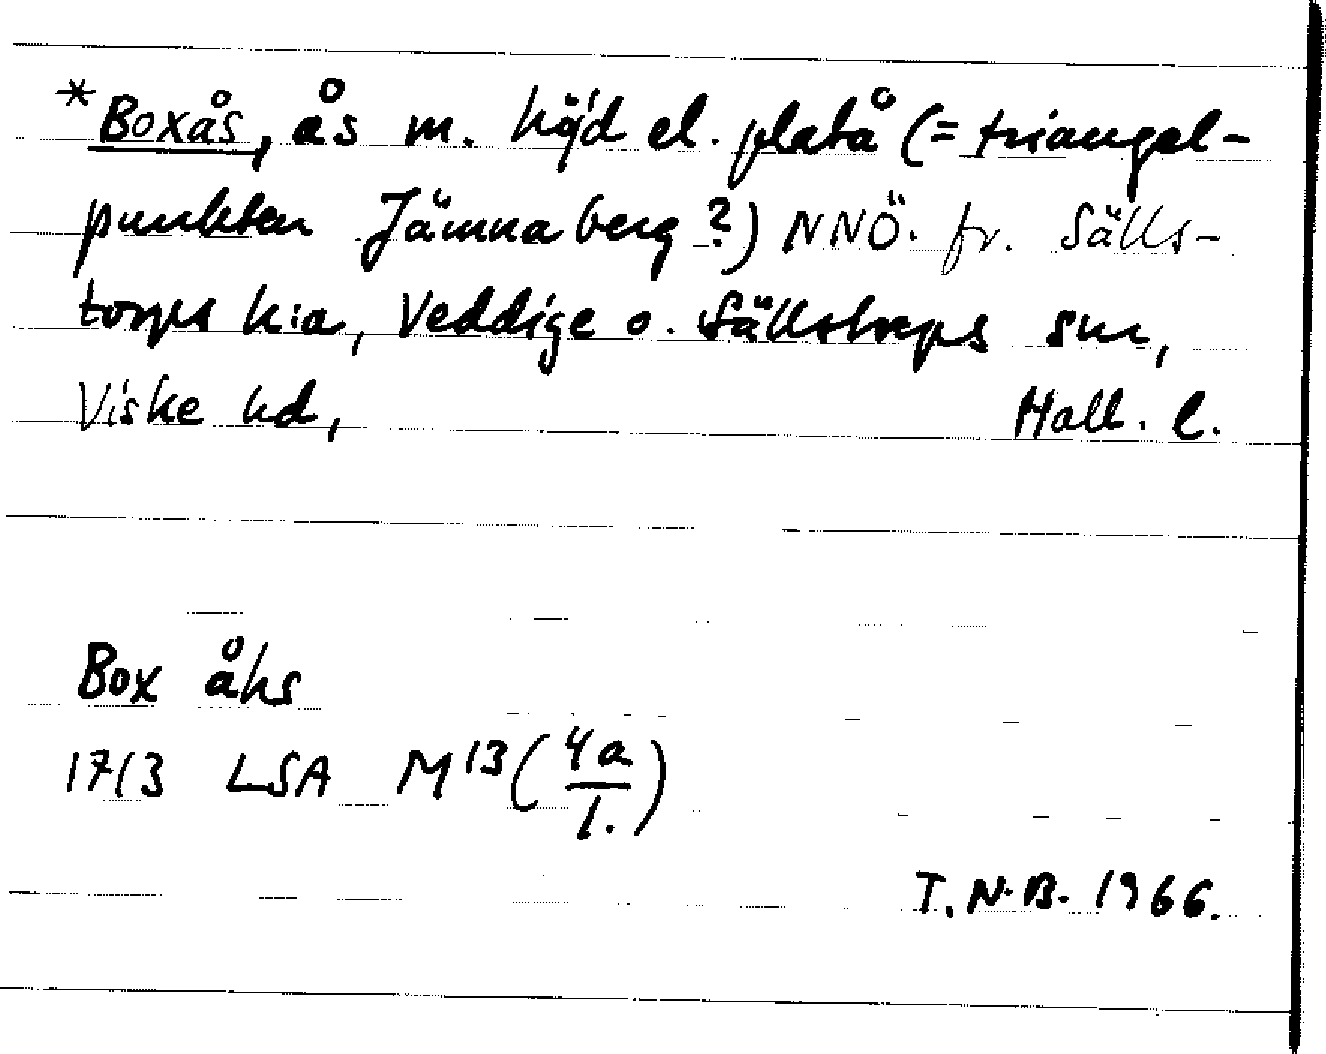 *Boxås, ås m. höjd el. platå (= triangel-
punkten Jämnaberg?) NNÖ. fr. Sälls-
torps k:a, Veddige o. Sällstorps snr,
Viske hd, Hall. l.
Box åhs
1713 LSA M13 (4a/1.)
T.N.B. 1966.